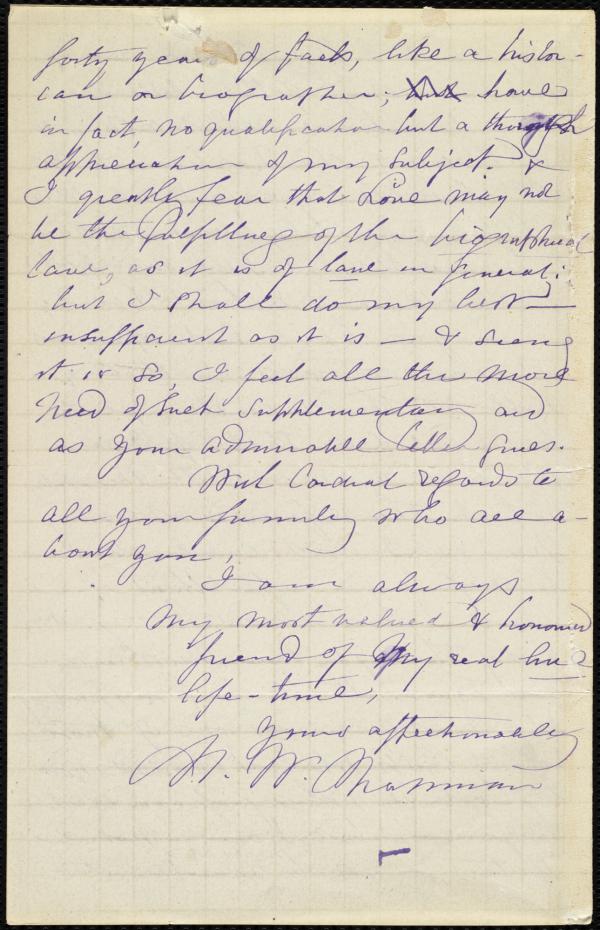 forty years of facts, like a histor-
ian or biographer; have
in fact, no qualification but a thorough
appreciation of my subject. &
I greatly fear that Love may not
be the fulfilling of the biographical
law, as it is of law in general;
but I shall do my best —
insufficient as it is — & seeing
it is so, I feel all the more
need of such supplementary aid
as your admirable letter gives.
With cordial regards to
all your family who are a-
bout you,
I am always
my most valued & honoured
friend of my real
life-time,
yours affectionately
M. W. Chapman